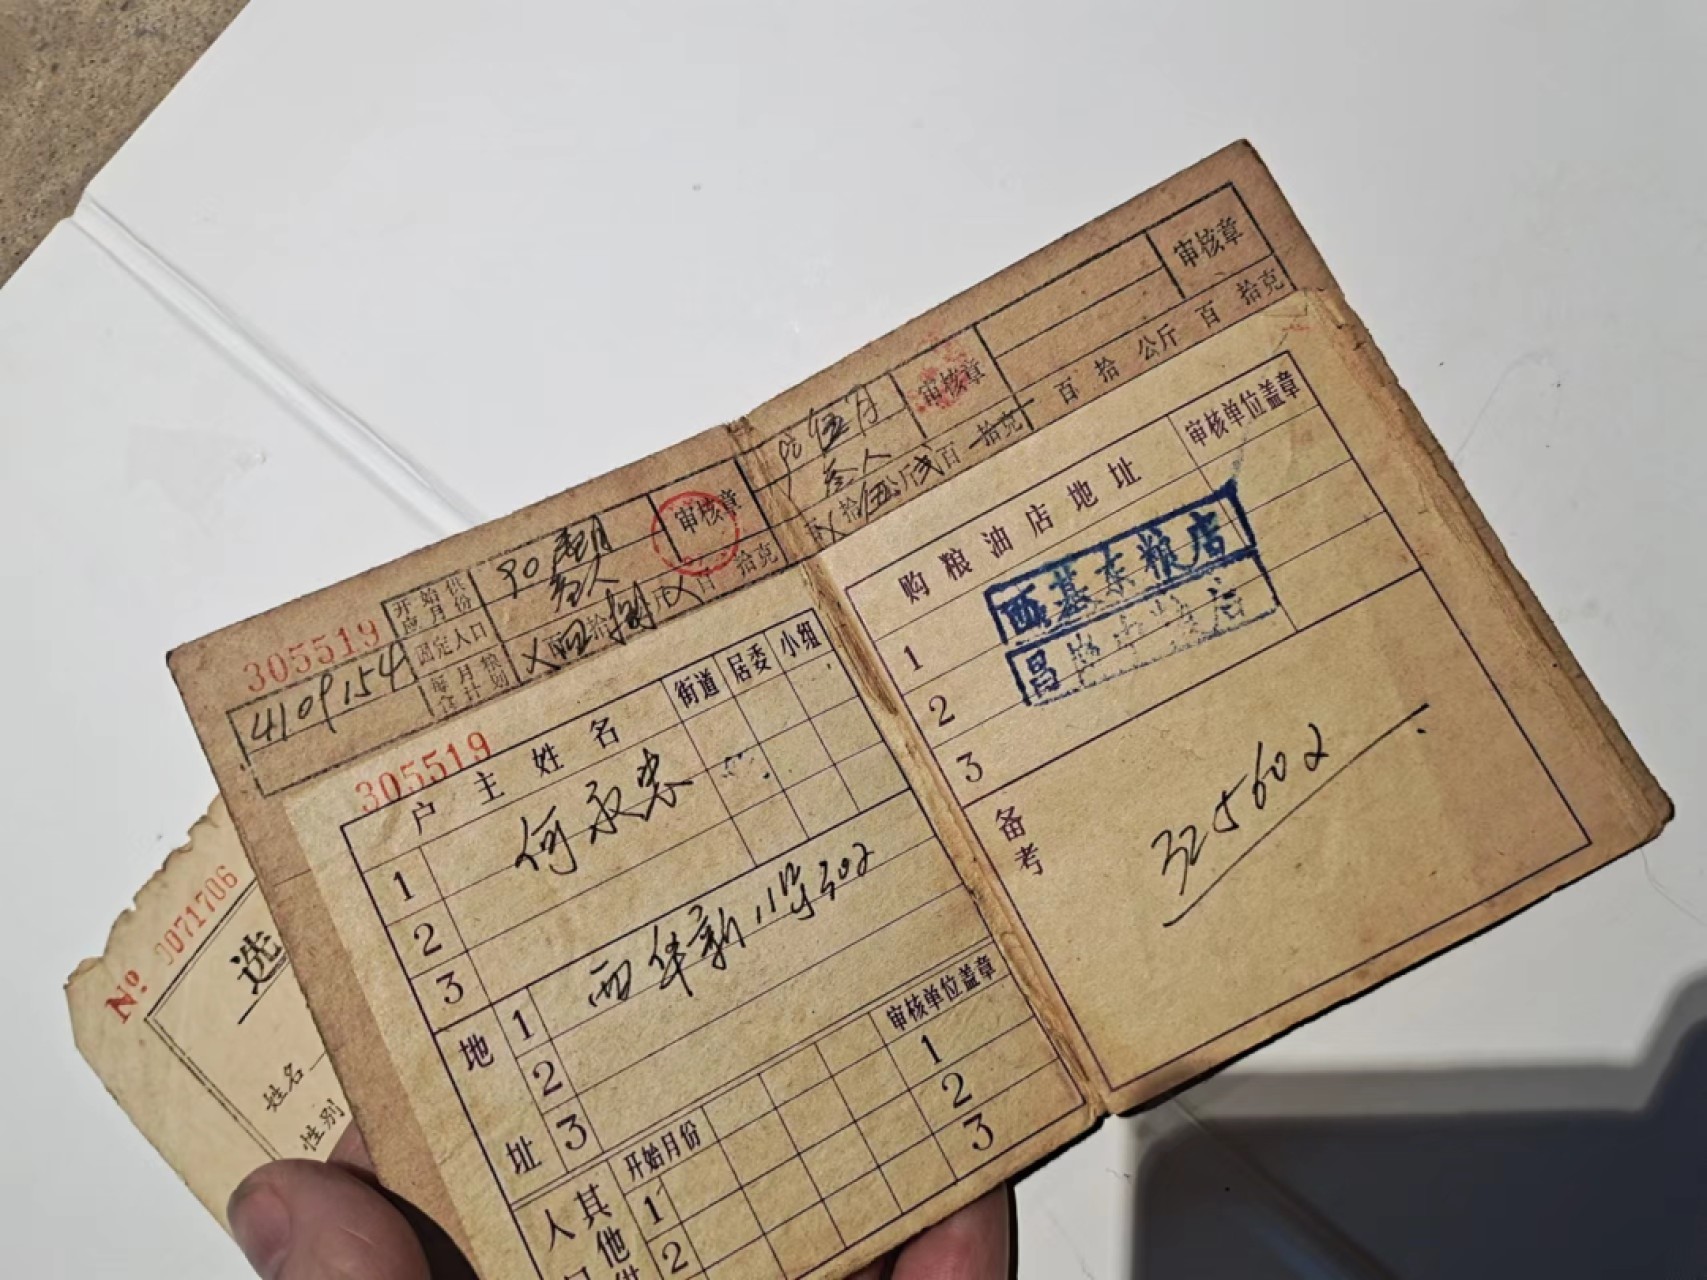 审核章
百 拾 公斤 百 拾克
90 伍月
审核章
叁人
百 拾伍公斤弍百 拾克
305519
开始供应月份
90
审核章
固定人口
叁人
每月粮食计划
百 拾克
4109154
305519
户主姓名
街道
居委
小组
1 何永
2
3
地址
1 西华新11号302
2
3
其他供
人口
开始月份
审核单位盖章
1
2
1
2
3
购粮油店地址
审核单位盖章
1
2
3
西基东粮店
昌华中粮店
备考
325602
No 0071706
选
姓名
性别